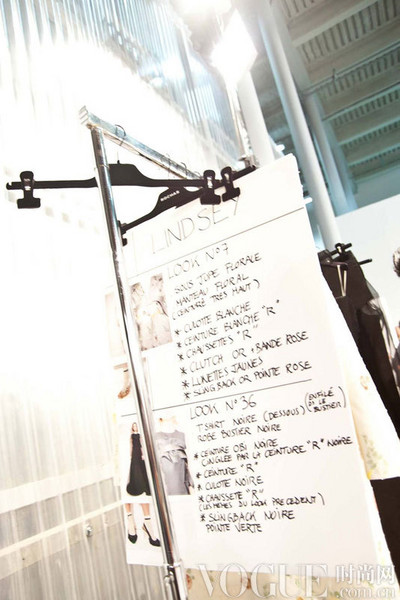 ROCHAS
LINDSEY
LOOK N°7
SOUS JUPE FLORALE
MANTEAU FLORAL
(CEINTURÉ TRÈS HAUT)
* CULOTTE BLANCHE
* CEINTURE BLANCHE "R"
* CHAUSSETTES "R"
* CLUTCH OR + BANDE ROSE
* LUNETTES JAUNES
* SLINGBACK OR POINTE ROSE
LOOK N°36
T SHIRT NOIRE (DESSOUS) (ENFILÉ
ROBE BUSTIER NOIRE
BUSTIER)
* CEINTURE OBI NOIRE
(SANGLÉE PAR LA CEINTURE "R" NOIRE
* CEINTURE "R"
* CULOTE NOIRE
* CHAUSSETE "R"
(LES MÊMES DU LOOK PRECEDENT)
* SLINGBACK NOIRE
POINTE VERTE
VOGUE时尚网
.com.cn